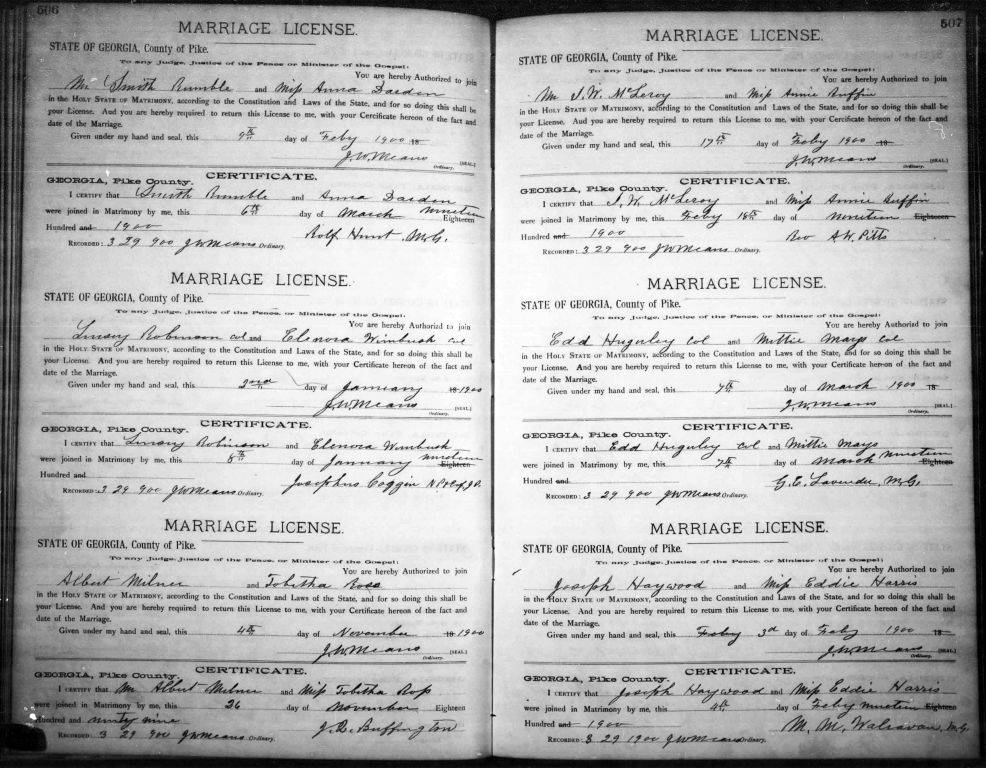 506
MARRIAGE LICENSE.
STATE OF GEORGIA, County of Pike.
To any Judge, Justice of the Peace or Minister of the Gospel:
You are hereby Authorized to join
Mr Smith Rumble and Miss Anna Darden
in the HOLY STATE OF MATRIMONY, according to the Constitution and Laws of the State, and for so doing this shall be
your License. And you are hereby required to return this License to me, with your Certificate hereon of the fact and
date of the Marriage.
Given under my hand and seal, this 9th day of Feby 1900 18
J.W. Means [SEAL.]
Ordinary.
CERTIFICATE.
GEORGIA, Pike County.
I CERTIFY that Smith Rumble and Anna Darden
were joined in Matrimony by me, this 6th day of March nineteen Eighteen
Hundred and 1900 Rolf Hunt M.G.
RECORDED: 3 29 900 J W Means Ordinary.
MARRIAGE LICENSE.
STATE OF GEORGIA, County of Pike.
To any Judge, Justice of the Peace, or Minister of the Gospel:
You are hereby Authorized to join
Linsay Robinson col and Elenora Wimbush col
in the HOLY STATE OF MATRIMONY, according to the Constitution and Laws of the State, and for so doing this shall be
your License. And you are hereby required to return this License to me, with your Certificate hereon of the fact and
date of the Marriage.
Given under my hand and seal, this 2nd day of January 18 1900
J.W. Means [SEAL.]
Ordinary.
CERTIFICATE.
GEORGIA, Pike County.
I CERTIFY that Linsay Robinson and Elenora Wimbush
were joined in Matrimony by me, this 8th day of January nineteen Eighteen
Hundred and Josephus Coggin
RECORDED: 3 29 900 J W Means Ordinary.
MARRIAGE LICENSE.
STATE OF GEORGIA, County of Pike.
To any Judge, Justice of the Peace or Minister of the Gospel:
You are hereby Authorized to join
Albert Milner and Tobitha Ross
in the HOLY STATE OF MATRIMONY, according to the Constitution and Laws of the State, and for so doing this shall be
your License. And you are hereby required to return this License to me, with your Certificate hereon of the fact and
date of the Marriage.
Given under my hand and seal, this 4th day of November 18 1900
J.W. Means [SEAL.]
Ordinary.
CERTIFICATE.
GEORGIA, Pike County.
I CERTIFY that Mr Albert Milner and Miss Tobitha Ross
were joined in Matrimony by me, this 26 day of November Eighteen
Hundred and ninty nine J.R. Buffington
RECORDED: 3 29 900 J W Means Ordinary.
507
MARRIAGE LICENSE.
STATE OF GEORGIA, County of Pike.
To any Judge, Justice of the Peace or Minister of the Gospel:
You are hereby Authorized to join
Mr J. W. McLeroy and Miss Annie Ruffin
in the HOLY STATE OF MATRIMONY, according to the Constitution and Laws of the State, and for so doing this shall be
your License. And you are hereby required to return this License to me, with your Certificate hereon of the fact and
date of the Marriage.
Given under my hand and seal, this 17th day of Feby 1900 18
J.W. Means [SEAL.]
Ordinary.
CERTIFICATE.
GEORGIA, Pike County.
I CERTIFY that J. W. McLeroy and Miss Annie Ruffin
were joined in Matrimony by me, this Feby 18th day of nineteen Eighteen
Hundred and 1900 Rev A.W. Pitts
RECORDED: 3 29 900 J W Means Ordinary.
MARRIAGE LICENSE.
STATE OF GEORGIA, County of Pike.
To any Judge, Justice of the Peace, or Minister of the Gospel:
You are hereby Authorized to join
Edd Huguley col and Mittie Mays col
in the HOLY STATE OF MATRIMONY, according to the Constitution and Laws of the State, and for so doing this shall be
your License. And you are hereby required to return this License to me, with your Certificate hereon of the fact and
date of the Marriage.
Given under my hand and seal, this 7th day of March 1900 18
J.W. Means [SEAL.]
Ordinary.
CERTIFICATE.
GEORGIA, Pike County.
I CERTIFY that Edd Huguley col and Mittie Mays
were joined in Matrimony by me, this 7th day of March nineteen Eighteen
Hundred and G.E. Lavender M.G.
RECORDED: 3 29 900 J W Means Ordinary.
MARRIAGE LICENSE.
STATE OF GEORGIA, County of Pike.
To any Judge, Justice of the Peace or Minister of the Gospel:
You are hereby Authorized to join
Joseph Haywood and Miss Eddie Harris
in the HOLY STATE OF MATRIMONY, according to the Constitution and Laws of the State, and for so doing this shall be
your License. And you are hereby required to return this License to me, with your Certificate hereon of the fact and
date of the Marriage.
Given under my hand and seal, this Feby 3d day of Feby 1900 18
J.W. Means [SEAL.]
Ordinary.
CERTIFICATE.
GEORGIA, Pike County.
I CERTIFY that Joseph Haywood and Miss Eddie Harris
were joined in Matrimony by me, this 4th day of Feby nineteen Eighteen
Hundred and 1900 M. M. Walraven, M.G.
RECORDED: 3 29 1900 J W Means Ordinary.